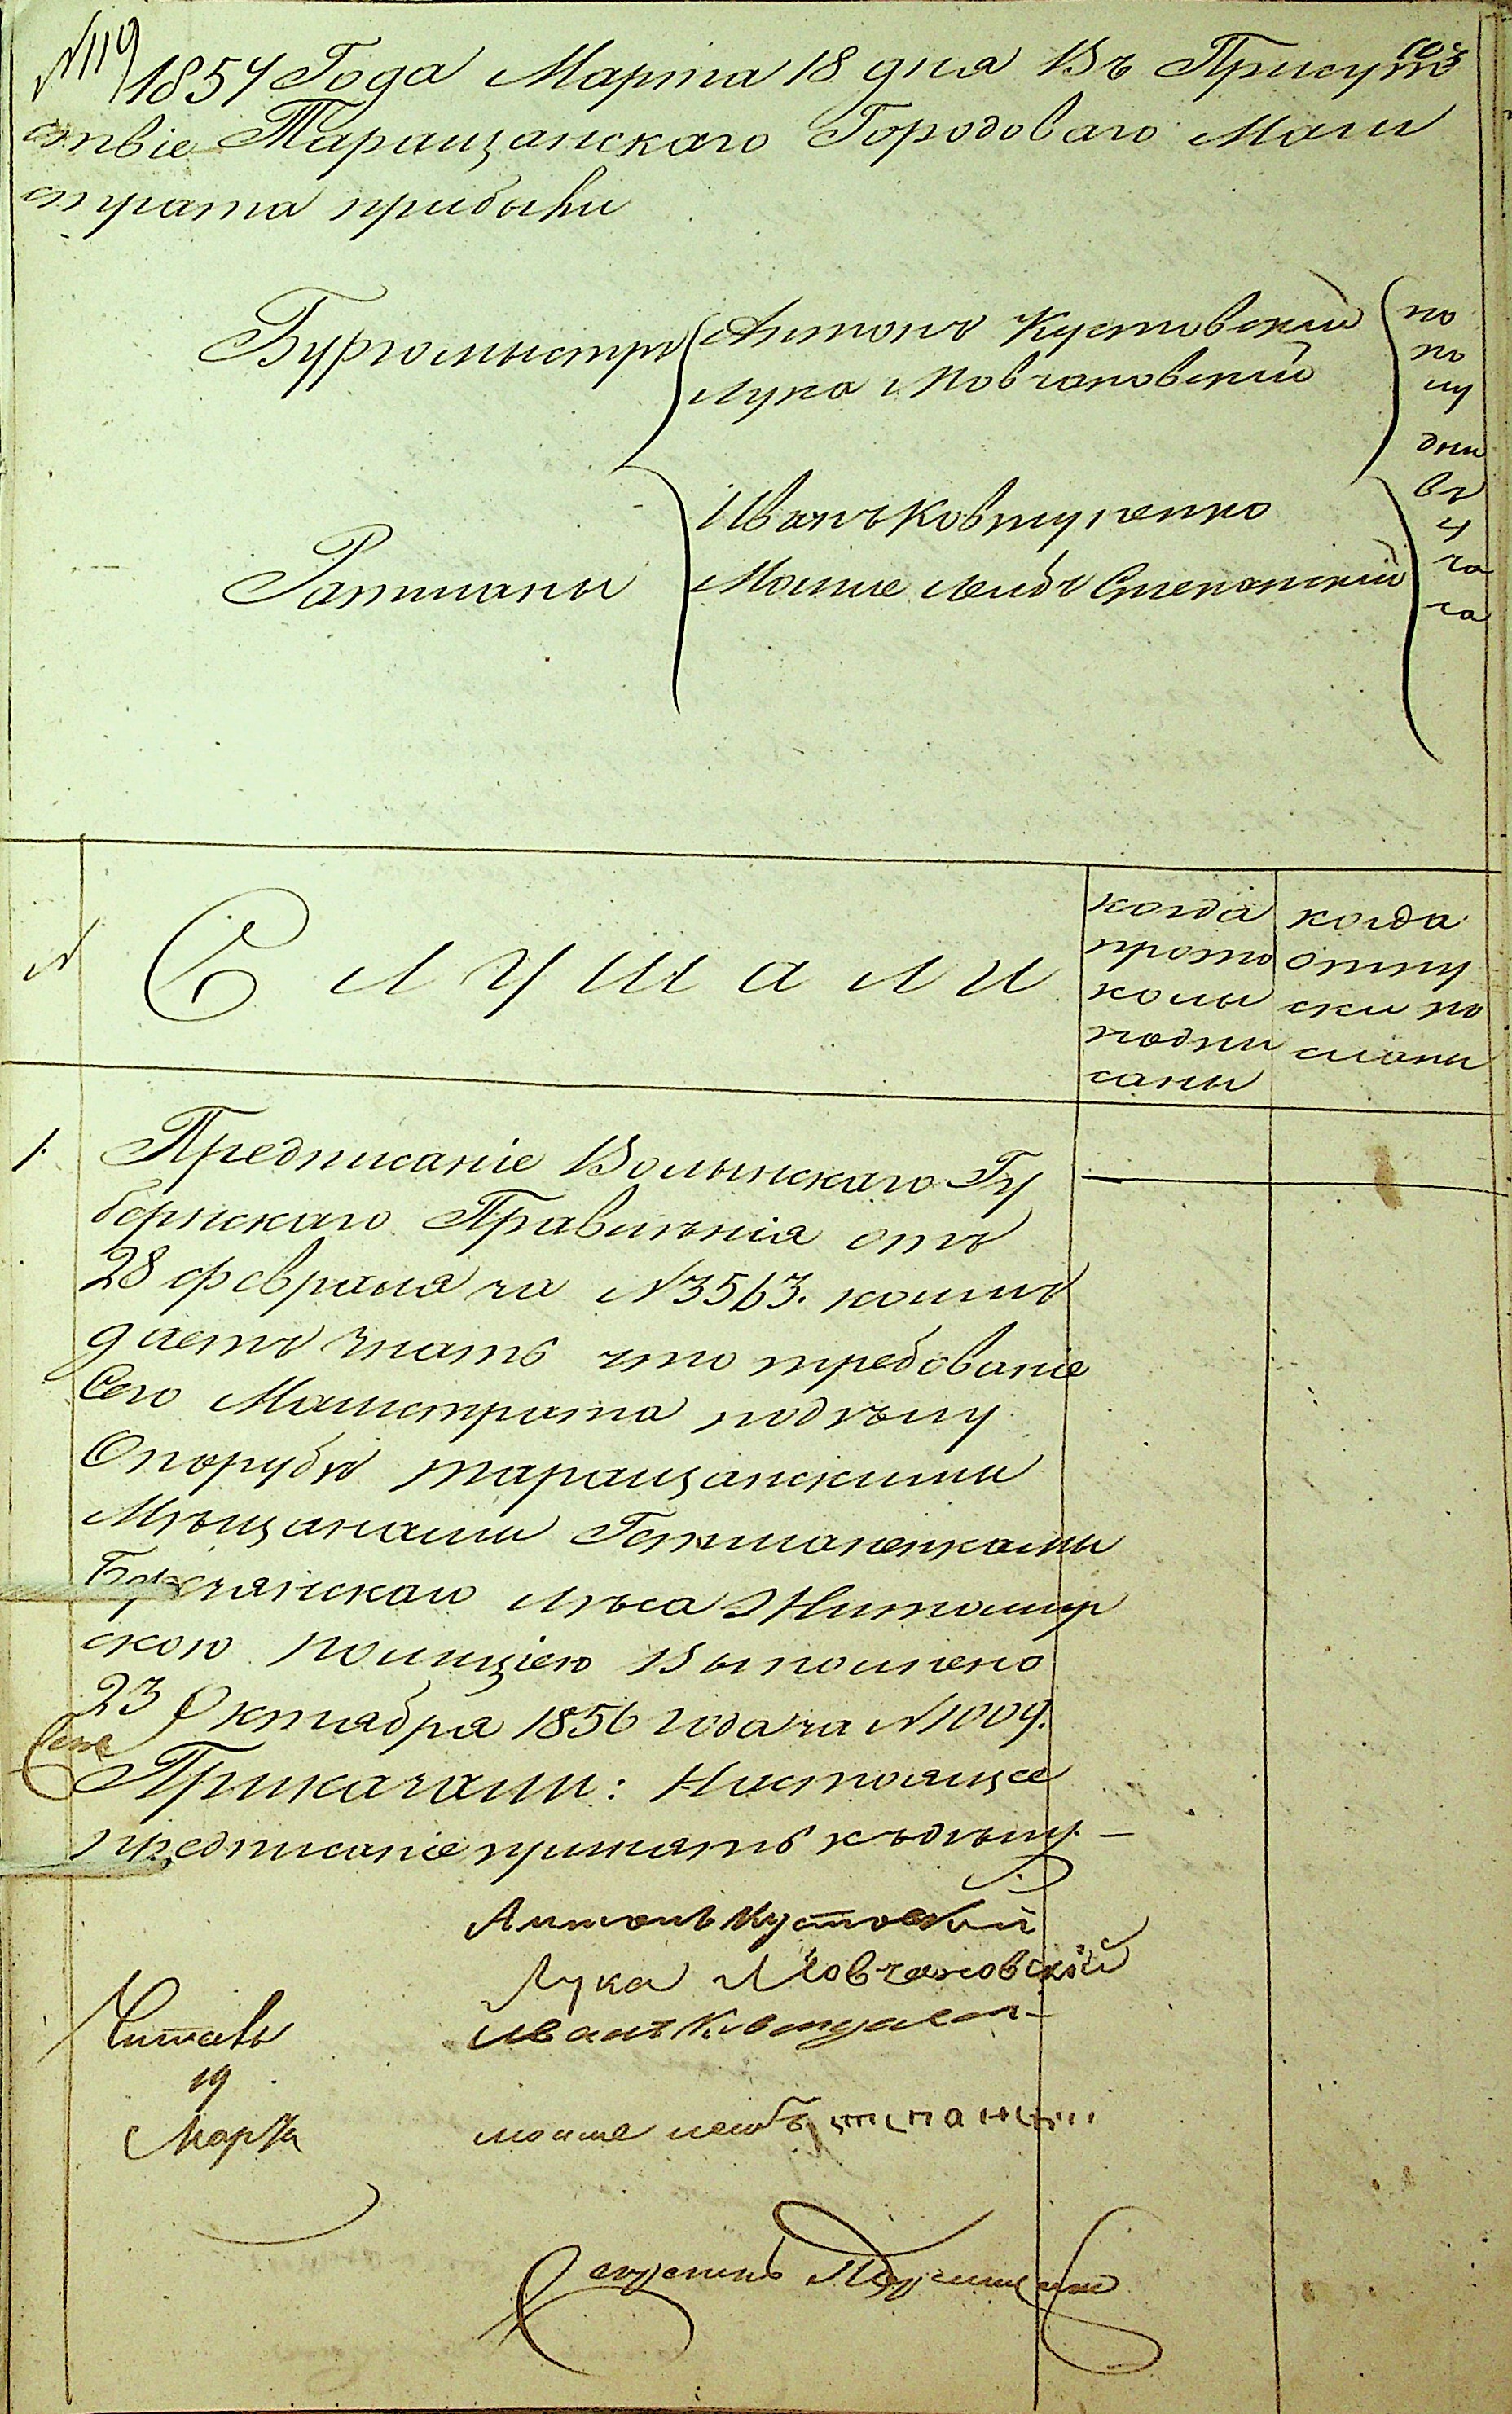 № 119
1857 Года Марта 18 дня Въ Присут
ствіе Таращанскаго Городоваго Маги
страта прибыли
Бургомыстры
Антонъ Кустовскій
Лука Мовчановскій
Ратманы
Иванъ Ковтуненко
Мошке Лейбъ Степанскій
по
по
лу
дни
въ
4
ча
са
№
Слушали
когда
прото
колы
подпи
саны
когда
отпу
ски по
сланы
1. Предписаніе Волынскаго Гу
бернскаго Правленія отъ
28 февраля за №3563. коимъ
даетъ знать что требованіе
Сего Магистрата подѣлу
О порубкѣ таращанскими
Мѣщанами Гетманенками
лѣса Житомир
скою полиціею Выполнено
23 Октября 1856 года за №1009.
Приказали: Настоящее
предписаніе пришить къ дѣлу. —
Антонъ Кустовскій
Лука Мовчановскій
Иванъ
мошке лейбъ
Читалъ
19
Марта